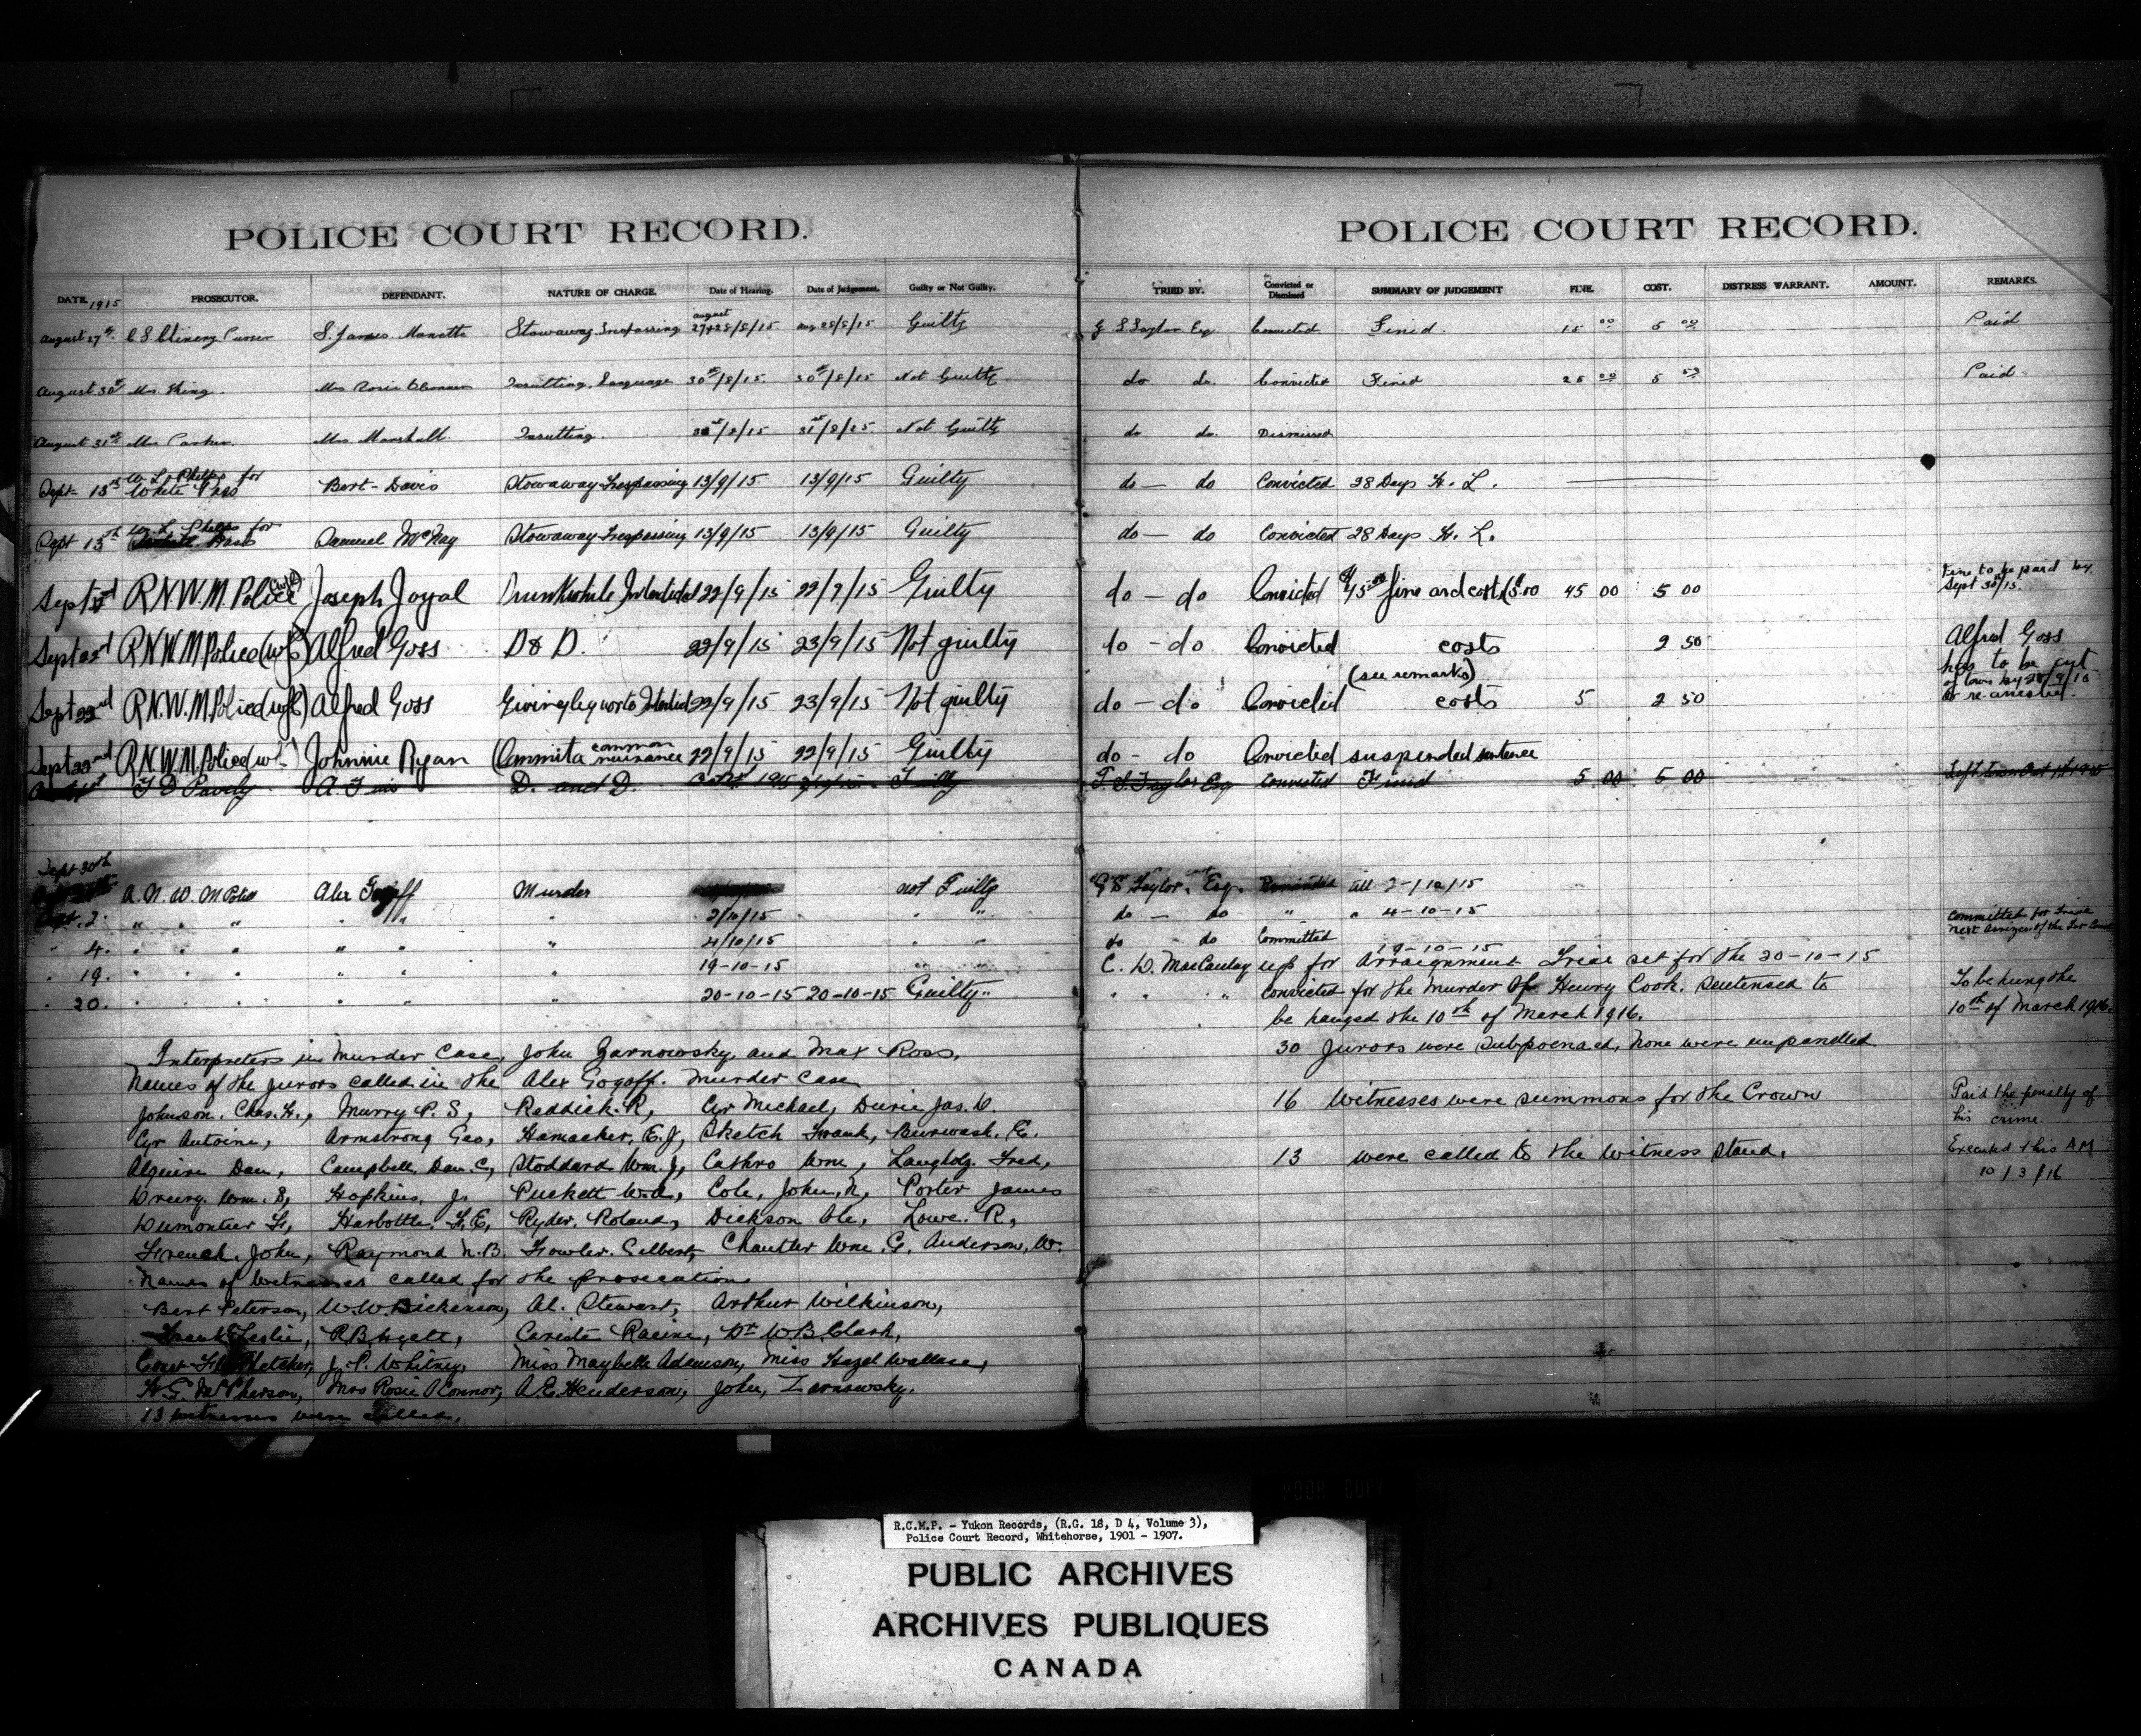 POLICE COURT RECORD.
DATE. 1915 PROSECUTOR. DEFENDANT. NATURE OF CHARGE. Date of Hearing. Date of Judgement. Guilty or Not Guilty.
August 27th C S Chinery Purser S. James Monette Stowaway Trespassing august 27+28/8/15 aug 28/8/15 Guilty
August 30th Mrs King. Mrs Rosie OConnor Insulting Language 30th/8/15. 30th/8/15 Not Guilty
August 31st Mrs Parker. Mrs Marshall. Insulting. 31st/8/15 31st/8/15 Not Guilty
Sept- 13th W. L. Phelps for White Pass Bert Davis Stowaway Trespassing 13/9/15 13/9/15 Guilty
Sept 13th W. L. Phelps for White Pass Samuel McNay Stowaway Trespassing 13/9/15 13/9/15 Guilty
Sept R.N.W.M. Police Joseph Joyal Drunk while Interdicted 22/9/15 22/9/15 Guilty
Sept 22nd R.N.W.M. Police Alfred Goss D & D. 22/9/15 23/9/15 Not guilty
Sept 22nd R.N.W.M. Police Alfred Goss Giving liquor to Interdict 22/9/15 23/9/15 Not guilty
Sept 22nd R.N.W.M. Police Johnnie Ryan Commit a common nuisance 22/9/15 22/9/15 Guilty
D. and D. Oct 1st 1915
Sept 30th
R. N. W. M Police Alex Gogoff Murder not Guilty
Oct. 2 " " " " " " 2/10/15 " "
" 4. " " " " " " 4/10/15 " "
" 19. " " " " " " 19-10-15 " "
" 20. " " " " " " 20-10-15 20-10-15 Guilty "
Interpreters in Murder Case, John Zarnowsky and Max Ross.
Names of the jurors called in the Alex Gogoff. Murder Case
Johnson. Chas. H., Murry P. S, Reddick. R, Cyr Michael, Durie Jas. D.
Cyr Antoine, Armstrong Geo, Hamacher, E. J, Sketch Frank, Burwash. E.
Alguire Dan, Campbell, Dan. C, Stoddard Wm. J, Cathro Wm, Langholz. Fred,
Drury. Wm. S, Hopkins. J. Puckett W.A, Cole, John. N, Porter James
Dumontier H, Harbottle. F. E, Ryder. Roland, Dickson Ole, Lowe. R,
French. John, Raymond N. B. Fowler. Gilbert, Chantler Wm. G, Anderson, W.
Names of Witnesses called for the prosecution
Bert Peterson, W. W Dickenson, Al. Stewart, Arthur Wilkinson,
Frank Leslie, R B Hyett, Cariste Racine, Dr W. B. Clark,
Const Fletcher, J. P. Whitney, Miss Maybelle Adamson, Miss Hazel Wallace,
H. G. McPherson, Mrs Rosie OConnor, A. E. Henderson, John, Zarnowsky.
13 Witnesses were called.
POLICE COURT RECORD.
TRIED BY. Convicted or Dismissed SUMMARY OF JUDGEMENT FINE. COST. DISTRESS WARRANT. AMOUNT. REMARKS.
G S Taylor Esq Convicted Fined. 15 00 5 00 Paid
do do. Convicted Fined 25 00 5 50 Paid
do do. Dismissed
do — do Convicted 28 Days H. L.
do — do Convicted 28 Days H. L.
do — do Convicted $45.00 fine and costs $5.00 45 00 5 00 Fine to be paid by Sept 30th/15.
do - do Convicted costs 2 50 Alfred Goss
(see remarks) has to be out
do - do Convicted costs 5 2 50 of town by 25/9/15 or re-arrested.
do - do Convicted suspended sentence
G. S. Taylor Esq Convicted Fined 5 00 5 00 Left town Oct 1st 1915
G S Taylor. Esq. Remanded till 2-/10/15
do — do " " 4-10-15
do - do Committed Committed for Trial next assizes of the Ter Court
19-10-15
C. D. MacCaulay up for Arraignment Trial set for the 20-10-15
" " " Convicted for the murder of Henry Cook. Sentensed to To be hung the
be hanged the 10th of March 1916. 10th of March 1916.
30 Jurors were Subpoenaed, None were impanelled
16 Witnesses were summons for the Crown Paid the penalty of his crime
13 were called to the Witness Stand. Executed this A M
10/3/16
R.C.M.P. - Yukon Records, (R.G. 18, D 4, Volume 3),
Police Court Record, Whitehorse, 1901 - 1907.
PUBLIC ARCHIVES
ARCHIVES PUBLIQUES
CANADA